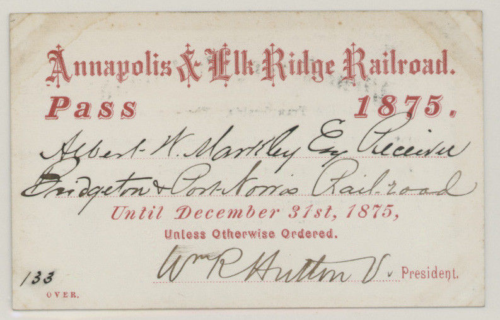 Annapolis & Elk Ridge Railroad.
Pass 1875.
Albert W. Markley Esq Receiver
Bridgeton & Port Norris Railroad
Until December 31st, 1875,
Unless Otherwise Ordered.
Wm R Hutton V. President.
133
OVER.